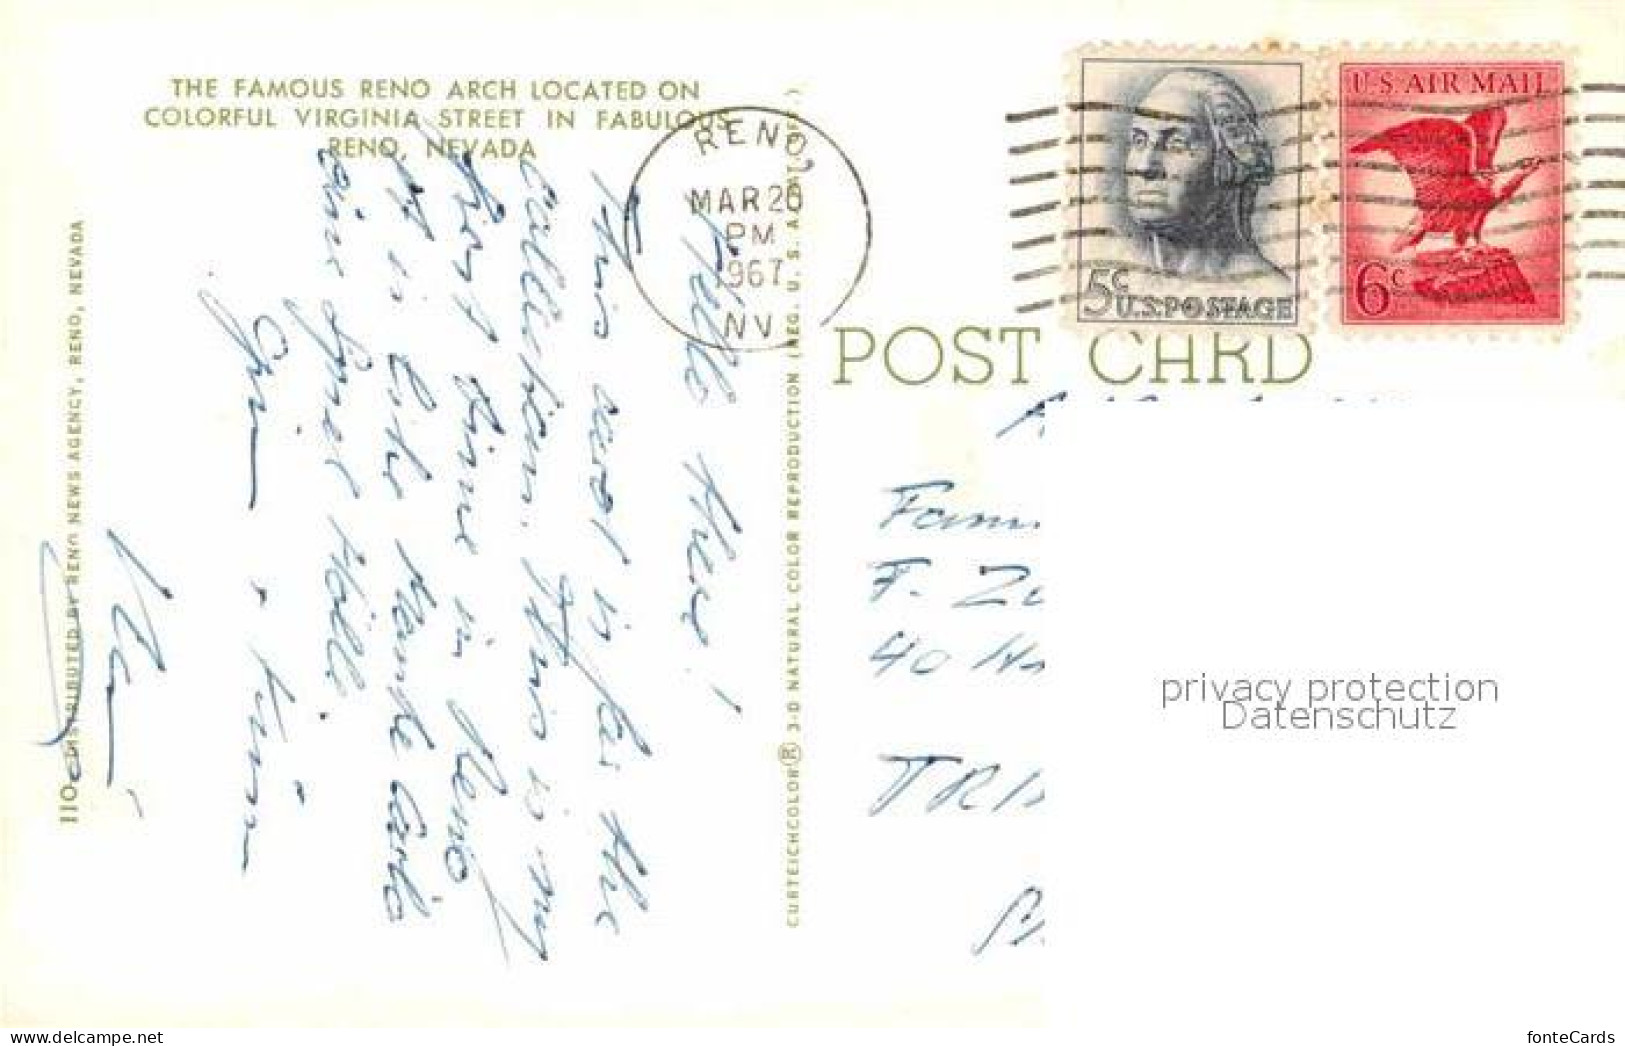 THE FAMOUS RENO ARCH LOCATED ON
COLORFUL VIRGINIA STREET IN FABULOUS
RENO, NEVADA
RENO,
MAR 20
PM
1967
NV
U.S. AIR MAIL
6c
5c
U.S. POSTAGE
POST CARD
Hello there!
This card is for the
collection. This is my
first time in Reno
It is like Monte Carlo
eine Spiel Hölle
110 DISTRIBUTED BY RENO NEWS AGENCY, RENO, NEVADA
CURTEICHCOLOR® 3-D NATURAL COLOR REPRODUCTION (REG. U. S. A. PAT. OFF.)
F.
40
privacy protection
Datenschutz
www.delcampe.net
fonteCards